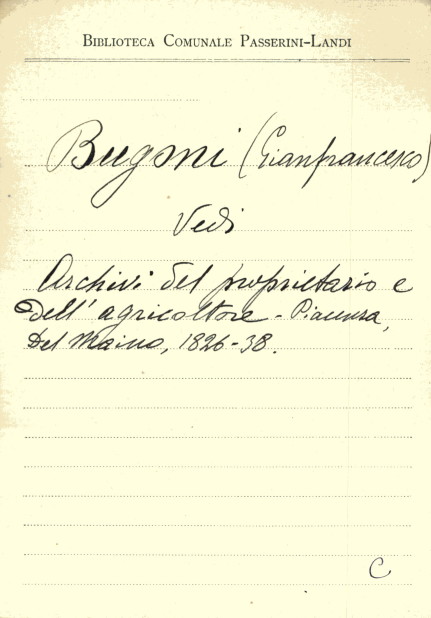 BIBLIOTECA COMUNALE PASSERINI-LANDI
Bugoni (Gianfrancesco)
Vedi
Archivi del proprietario e
dell'agricoltore - Piacenza,
Del Maino, 1826-38.
C